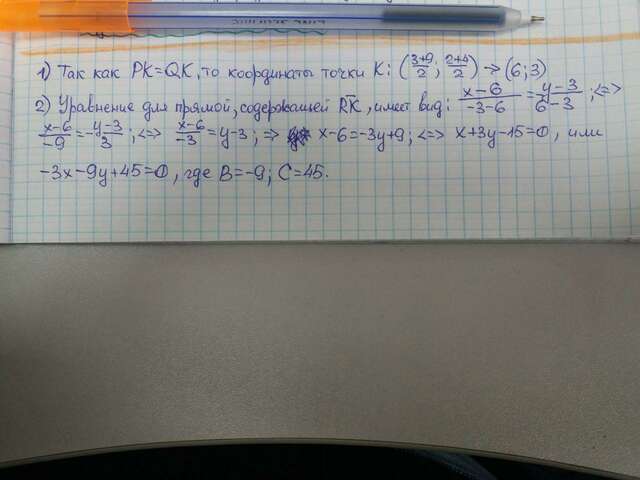 1) Так как PK=QK, то координаты точки К: (3+9/2; 2+4/2) → (6;3)
2) Уравнение для прямой, содержащей RK, имеет вид: x-6/-3-6 = y-3/6-3; <=>
x-6/-9 = y-3/3; <=> x-6/-3 = y-3; => x-6=-3y+9; <=> x+3y-15=0, или
-3x-9y+45=0, где B=-9; C=45.